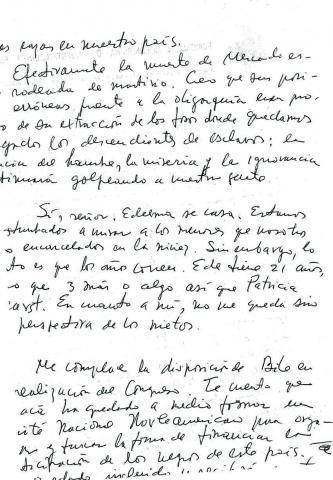 es rojas en nuestro país.
Efectivamente la muerte de Mercado es-
rodeada de martirio. Creo que sus posi-
erróneas frente a la oligarquía eran pro-
o de su extracción de los foros donde quedamos
los descendientes de esclavos: la
cia del hambre, la miseria y la ignorancia
tinuará golpeando a nuestra gente.
Sí, señor. Edelma se casa. Estamos
tumbrados a mirar a los menores que nosotros
o encarcelados en la niñez. Sin embargo, lo
to es que los año corren. Ede tiene 21 años,
o que 3 más o algo así que Patricia
En cuanto a mí, no me queda sino
perspectiva de los nietos.
Me complace la disposición de Bito en
realización del Congreso. Te cuento que
acá ha quedado a medio formar un
ité Nacional Norteamericano para orga-
y buscar la forma de financiar la
ticipación de los negros de este país.